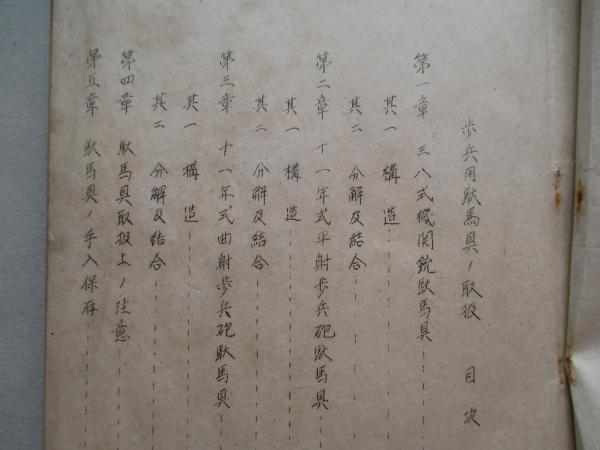 歩兵用駄馬具ノ取扱 目次
第一章 三八式機関銃駄馬具
其一 構造
其二 分解及結合
第二章 十一年式平射歩兵砲駄馬具
其一 構造
其二 分解及結合
第三章 十一年式曲射歩兵砲駄馬具
其一 構造
其二 分解及結合
第四章 駄馬具取扱上ノ注意
第五章 駄馬具ノ手入保存